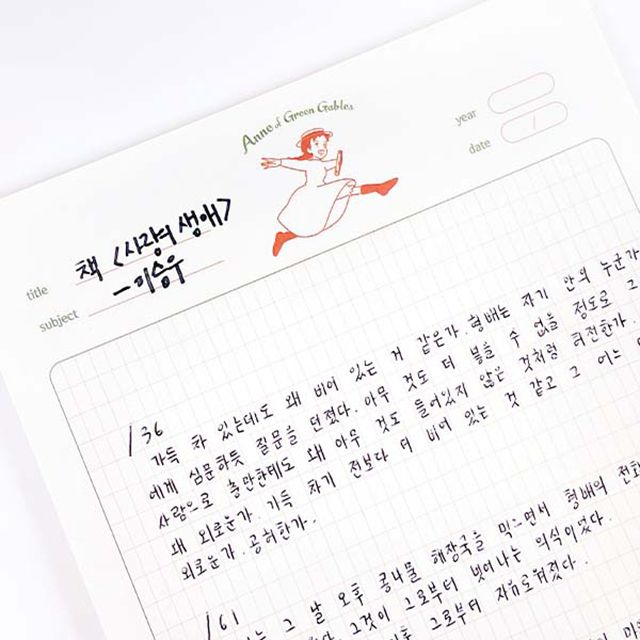 Anne of Green Gables
year
date /
title 책 <사랑의 생애>
subject - 이승우
/36
가득 차 있는데도 왜 비어 있는 거 같은가. 형배는 자기 안의 누군가
에게 심문하듯 질문을 던졌다. 아무 것도 더 붙을 수 없을 정도로 그
사람으로 충만한데도 왜 아무 것도 들어있지 않은 것처럼 허전한가.
왜 외로운가. 가득 차기 전보다 더 비어 있는 것 같고 그 어느
외로운가. 공허한가.
/61
는 그 날 오후 콩나물 해장국을 먹으면서 형배의 전화
그것이 그로부터 벗어나는 의식이었다.
그로부터 자유로워졌다.